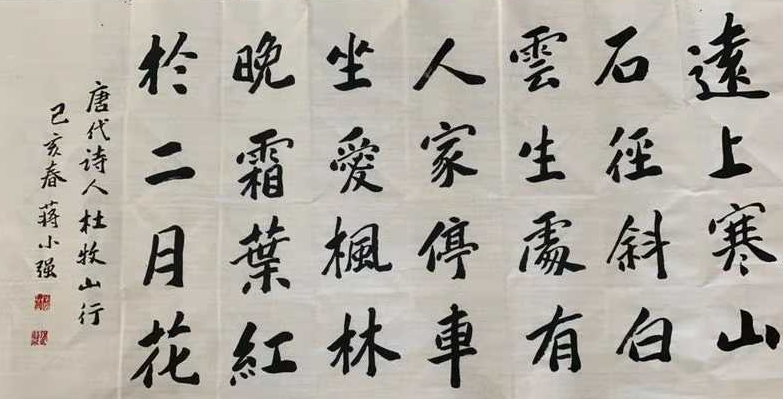 遠上寒山
石徑斜白
雲生處有
人家停車
坐愛楓林
晚霜葉紅
於二月花
唐代诗人杜牧山行
己亥春蒋小强